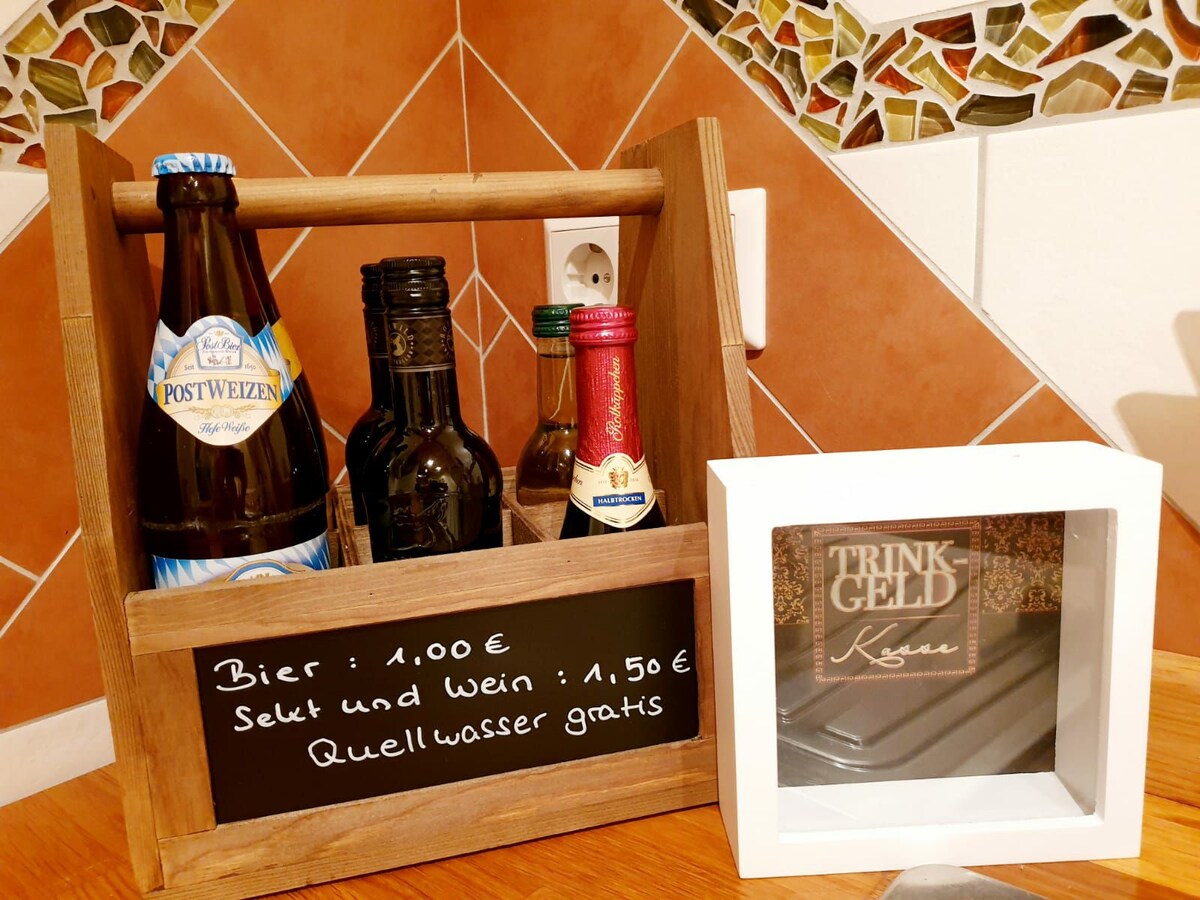 PostBier
Seit 1650
POSTWEIZEN
Hefe-Weiße
Rotkäppchen
HALBTROCKEN
Bier : 1,00 €
Sekt und Wein : 1,50 €
Quellwasser gratis
TRINK-
GELD
Kasse